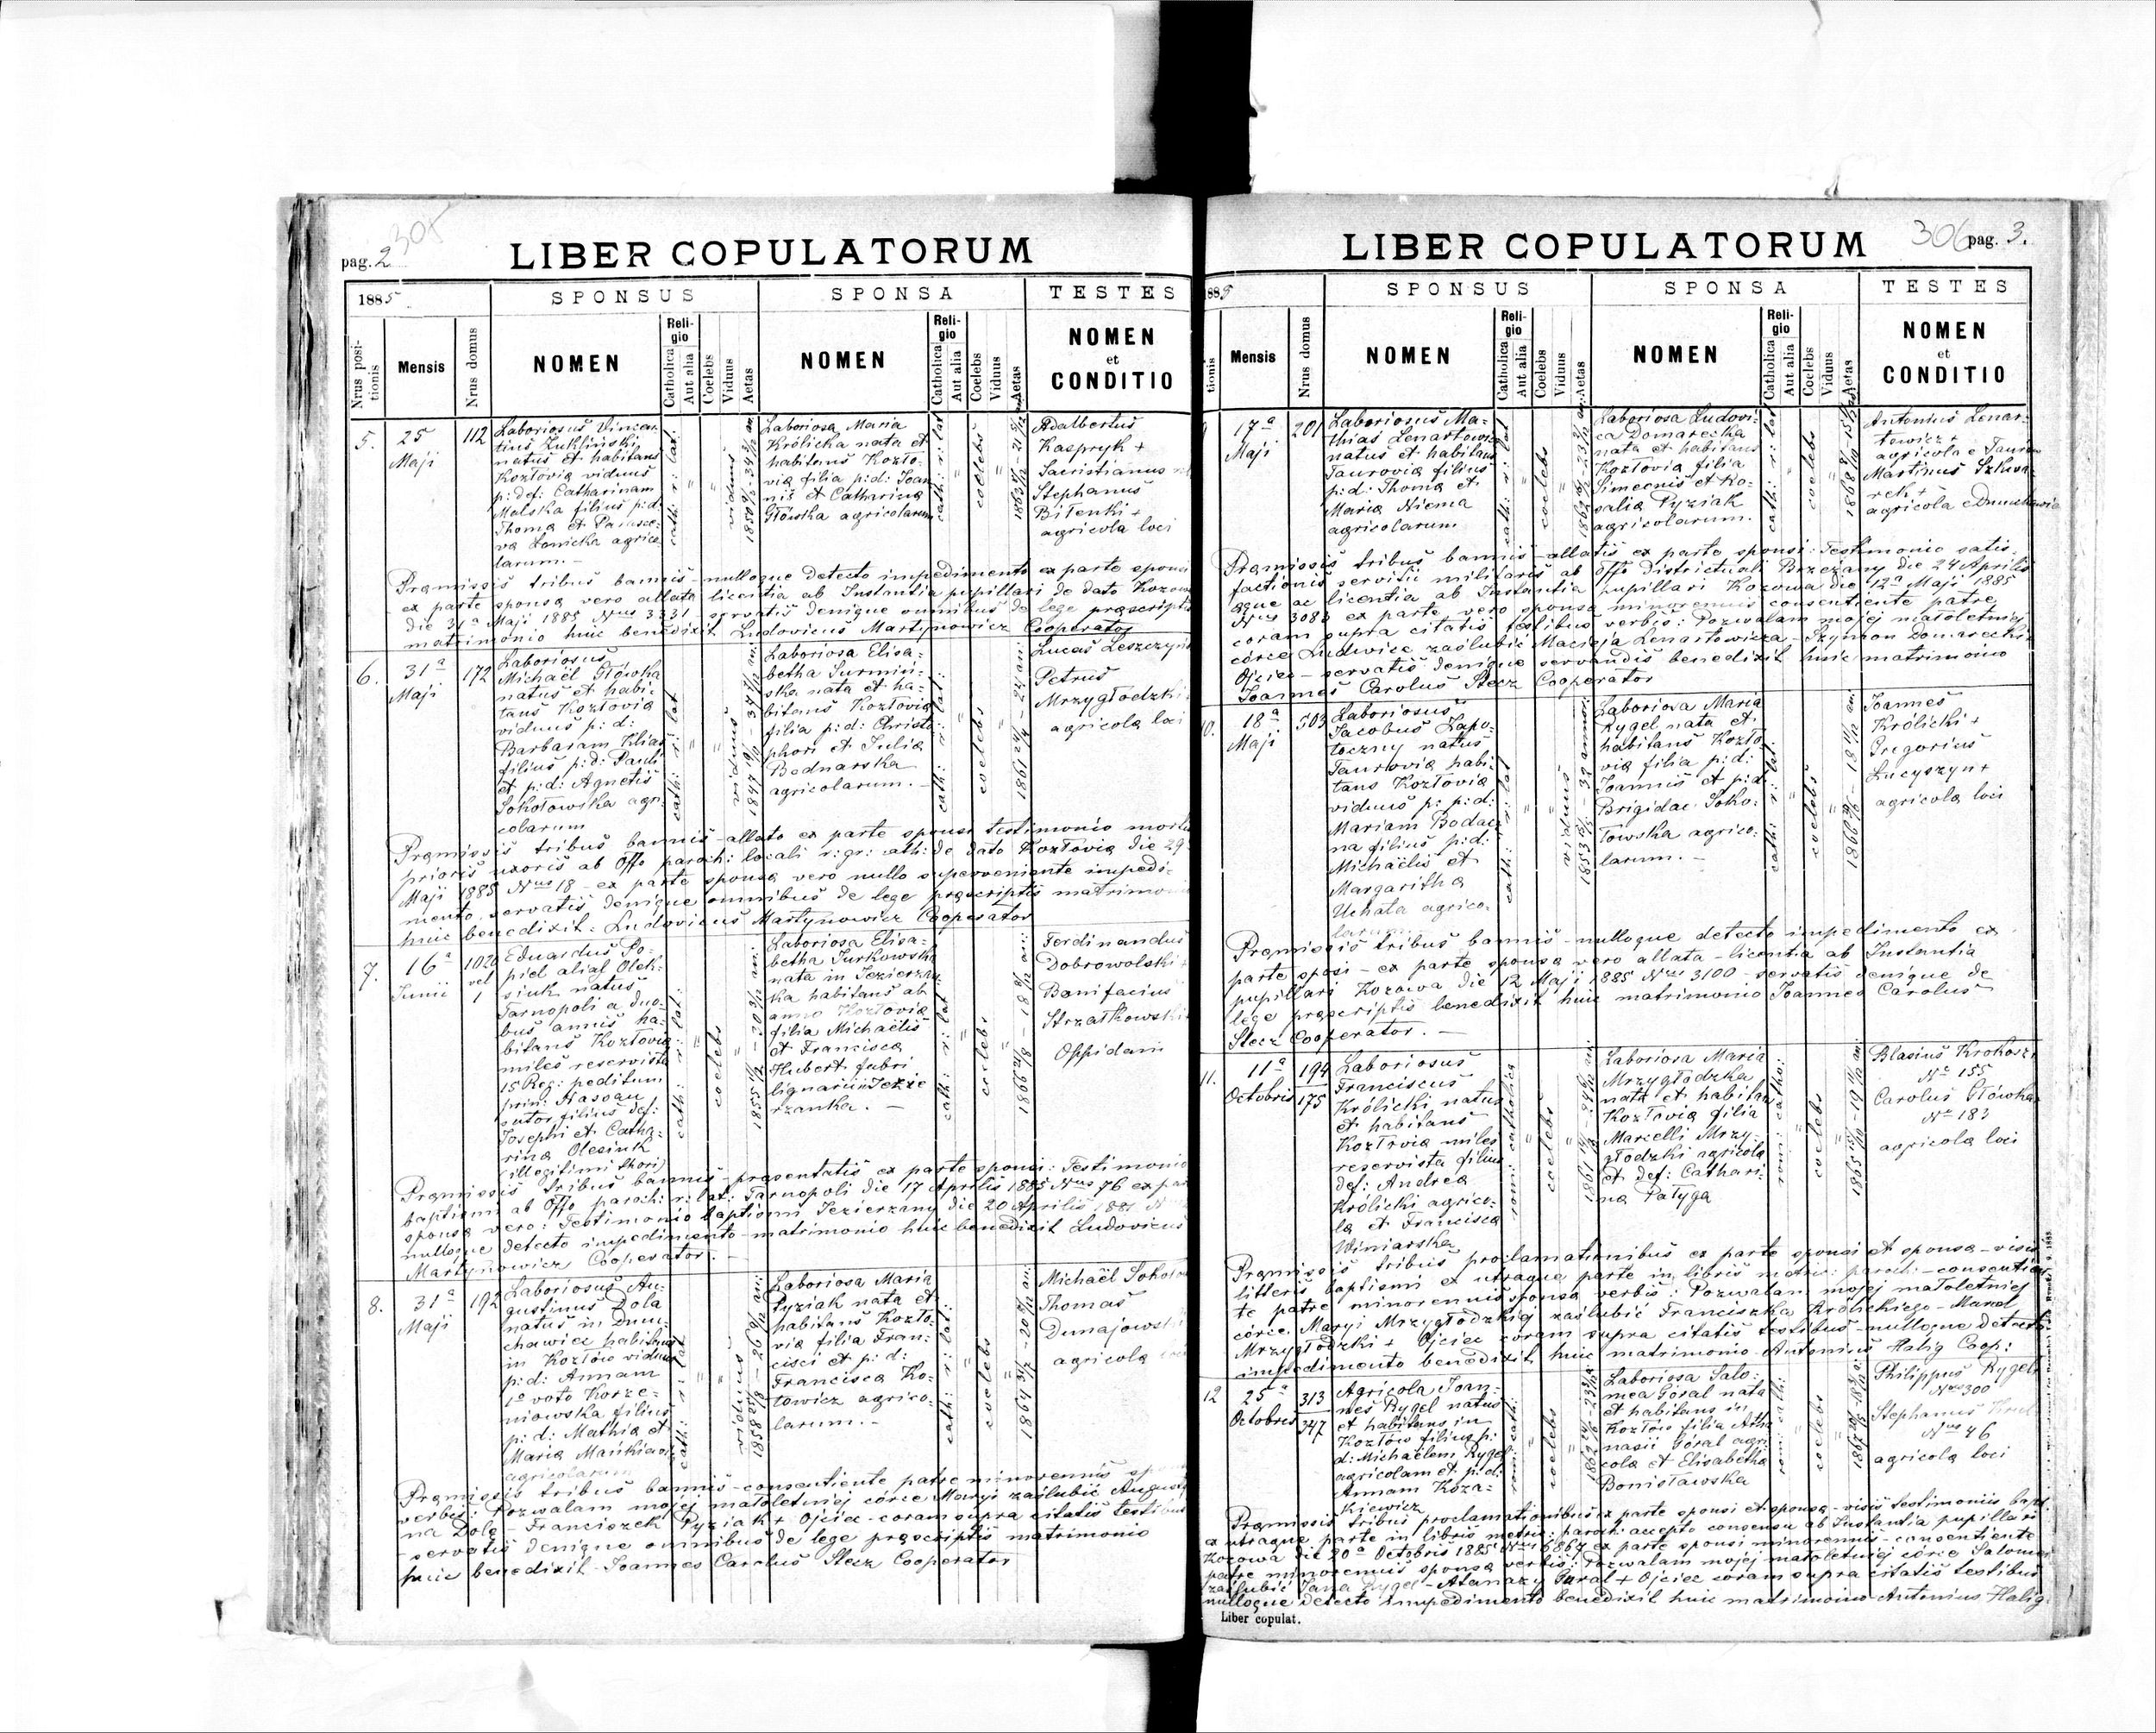 pag. 2
305
LIBER COPULATORUM
1885
SPONSUS
SPONSA
TESTES
Nrus positionis
Mensis
Nrus domus
NOMEN
Religio
Catholica
Aut alia
Coelebs
Viduus
Aetas
NOMEN
Religio
Catholica
Aut alia
Coelebs
Viduus
Aetas
NOMEN
et
CONDITIO
5.
25
Maji
112
Laboriosus Vincen-
tius
natus et habitans
Kozłoviæ viduus
p: def: Catharinam
Malska filius p: d:
Thomæ et
agrico-
larum. -
cath: r: lat:
viduus
Laboriosa Maria
Królicka nata et
habitans Kozło-
viæ filia p: d: Joan
nis et Catharinæ
Głowska agricolarum
cath: r: lat
coelebs
Adalbertus
Kaspryk +
Sacristianus
Stephanus
Bilenki +
agricola loci
Præmissis tribus bannis - nulloque detecto impedimento ex parte sponsi
ex parte sponsæ vero allata licentia ab Instantia pupillari de dato Kozowa
die 31ª Maji 1885 Nus 3331 servatis denique omnibus de lege præscriptis
matrimonio huic benedixit Ludovicus Martynowicz Cooperator
6.
31ª
Maji
172
Laboriosus
Michaël Głowka
natus et habi-
tans Kozłoviæ
viduus p: d:
Barbaram Klias
filius p: d: Pauli
et p: d: Agnetis
Sokołowska agri-
colarum
cath: r: lat
viduus
Laboriosa Elisa-
betha Surmiń-
ska nata et ha-
bitans Kozłoviæ
filia p: d: Christo
phori et Juliæ
Bednarska
agricolarum. -
cath: r: lat:
coelebs
Lucas Leszczyń
Petrus
Mrzygłodzki
agricolæ loci
Præmissis tribus bannis - allato ex parte sponsi testimonio mortis
prioris uxoris ab Offo paroch: locali r: gr: cath: de dato Kozłoviæ die 29
Maji 1885 Nus 18 - ex parte sponsæ vero nullo superveniente impedi-
mento servatis denique omnibus de lege præscriptis matrimonio
huic benedixit. Ludovicus Martynowicz Cooperator
7.
16ª
Junii
1020
vel
1
Eduardus Po-
piel alias Olek-
siuk natus
Tarnopoli a duo-
bus annis ha-
bitans Kozłoviæ
miles reservista
15 Reg: peditum
prin: Nassau
sutor filius def:
Josephi et Catha-
rinæ Olesiuk
(illegitimi thori)
cath: r: lat:
coelebs
Laboriosa Elisa-
betha Jurkowska
nata in Jezierzan
ka habitans ab
anno Kozłoviæ
filia Michaëlis
et Franciscæ
Hubert fabri
lignarii in Jezie
rzanka. -
cath: r: lat
coelebs
Ferdinandus
Dobrowolski
Bonifacius
Strzałkowski
Oppidani
Præmissis tribus bannis - præsentatis ex parte sponsi: Testimonio
baptismi ab Offo paroch: r: lat: Tarnopoli die 17 Aprilis 1885 Nus 76 ex par
sponsæ vero: Testimonio baptismi Jezierzany die 20 Aprilis 1881 N
nulloque detecto impedimento - matrimonio huic benedixit Ludovicus
Martynowicz Cooperator. -
8.
31ª
Maji
192
Laboriosus Au-
gustinus Dola
natus in Dmu-
chawiec habitans
in Kozłów viduus
p: d: Annam
1º voto Korze-
niowska filius
p: d: Mathiæ et
Mariæ
agricolarum
cath: r: lat
viduus
Laboriosa Maria
Pyziak nata et
habitans Kozło-
viæ filia Fran-
cisci et p: d:
Franciscæ Ko-
towicz agrico-
larum. -
cath: r: lat:
coelebs
Michaël Sokoło
Thomas
Dunajowski
agricolæ
Præmissis tribus bannis - consentiente patre minorennis spon
verbis: Pozwalam mojej małoletniej córce Maryi zaślubić Augusty
na Dolę - Franciszek Pyziak + Ojciec - coram supra citatis testibus
- servatis denique omnibus de lege præscriptis matrimonio
huic benedixit - Joannes Carolus Stecz Cooperator
LIBER COPULATORUM
306
pag. 3.
1885
SPONSUS
SPONSA
TESTES
tionis
Mensis
Nrus domus
NOMEN
Religio
Catholica
Aut alia
Coelebs
Viduus
Aetas
NOMEN
Religio
Catholica
Aut alia
Coelebs
Viduus
Aetas
NOMEN
et
CONDITIO
17ª
Maji
201
Laboriosus Ma-
thias Lenartowicz
natus et habitans
Tauroviæ filius
p: d: Thomæ et
Mariæ Niema
agricolarum
cath: r: lat
coelebs
Laboriosa Ludovi-
ca Domarecka
nata et habitans
Kozłoviæ filia
Simeonis et Ro-
saliæ Pyziak
agricolarum.
cath: r: lat
coelebs
Antonius Lenar-
towicz +
agricola e Taurów
Martinus
agricola e
Præmissis tribus bannis - allatis ex parte sponsi: Testimonio satis-
factionis servitii militaris ab Offo Districtuali Brzeżany die 24 Aprilis
æque ac licentia ab Instantia pupillari Kozowa die 12ª Maji 1885
Nus 3083 ex parte vero sponsæ minorennis consentiente patre
coram supra citatis testibus verbis: Pozwalam mojej małoletniej
córce Ludwice zaślubić Macieja Lenartowicza - Szymon Domarecki
Ojciec - servatis denique servandis benedixit huic matrimonio
Joannes Carolus Stecz Cooperator
10.
18ª
Maji
503
Laboriosus
Jacobus Zapo-
toczny natus
Tauroviæ habi-
tans Kozłoviæ
viduus p: p: d:
Mariam
filius p: d:
Michaëlis et
Margaritha
Uchata agrico-
larum
cath: r: lat
viduus
Laboriosa Maria
Rygel nata et
habitans Kozło-
viæ filia p: d:
Joannis et p: d:
Brigidae Soko-
łowska agrico-
larum. -
cath: r: lat:
coelebs
Joannes
Królicki +
Gregorius
Lucyszyn +
agricolæ loci
Præmissis tribus bannis - nulloque detecto impedimento ex
parte sposi - ex parte sponsæ vero allata - licentia ab Instantia
pupillari Kozowa die 12 Maji 1885 Nus 3100 - servatis denique de
lege præscriptis benedixit huic matrimonio Joannes Carolus
Stecz Cooperator. -
11.
11ª
Octobris
194
175
Laboriosus
Franciscus
Królicki natus
et habitans
Kozłoviæ miles
reservista filius
def: Andreæ
Królicki agrico-
læ et Franciscæ
Winiarska
rom: catholica
coelebs
Laboriosa Maria
Mrzygłodzka
nata et habitans
Kozłoviæ filia
Marcelli Mrzy-
głodzki agricolæ
et def: Cathari-
næ Pałyga
rom: catho:
coelebs
Blasius Krokosz
No 155
Carolus Głowka
No 183
agricolæ loci
Præmissis tribus proclamationibus ex parte sponsi et sponsæ - visis
litteris baptismi ex utraque parte in libris metric: paroch: - consentien
te patre minorennis sponsæ verbis: Pozwalam mojej małoletniej
córce Maryi Mrzygłodzkiej zaślubić Franciszka Królickiego - Marcel
Mrzygłodzki + Ojciec coram supra citatis testibus - nulloque detecto
impedimento benedixit huic matrimonio Antonius Halig Coop:
12
25ª
Octobris
313
347
Agricola Joan-
nes Rygel natus
et habitans in
Kozłów filius p:
d: Michaëlem Rygel
agricolam et p: d:
Annam Koza-
kiewicz
rom: cath:
coelebs
Laboriosa Salo-
mea Góral nata
et habitans in
Kozłów filia Atha
nasii Góral agri-
cola et Elisabetha
Bonisławska
rom: cath:
coelebs
Philippus Rygel
Nus 300
Stephanus
Nus 46
agricolæ loci
Præmissis tribus proclamationibus ex parte sponsi et sponsæ - visis testimoniis bapt.
ex utraque parte in libris metric: paroch: accepto consensu ab Instantia pupillari
Kozowa die 20ª Octobris 1885 Nus 6864 ex parte sponsi minorennis - consentiente
patre minorennis sponsæ verbis: Pozwalam mojej małoletniej córce Salomei
zaślubić Jana Rygel - Atanazy Góral + Ojciec coram supra citatis testibus
nulloque detecto impedimento benedixit huic matrimonio Antonius Halig
Liber copulat.